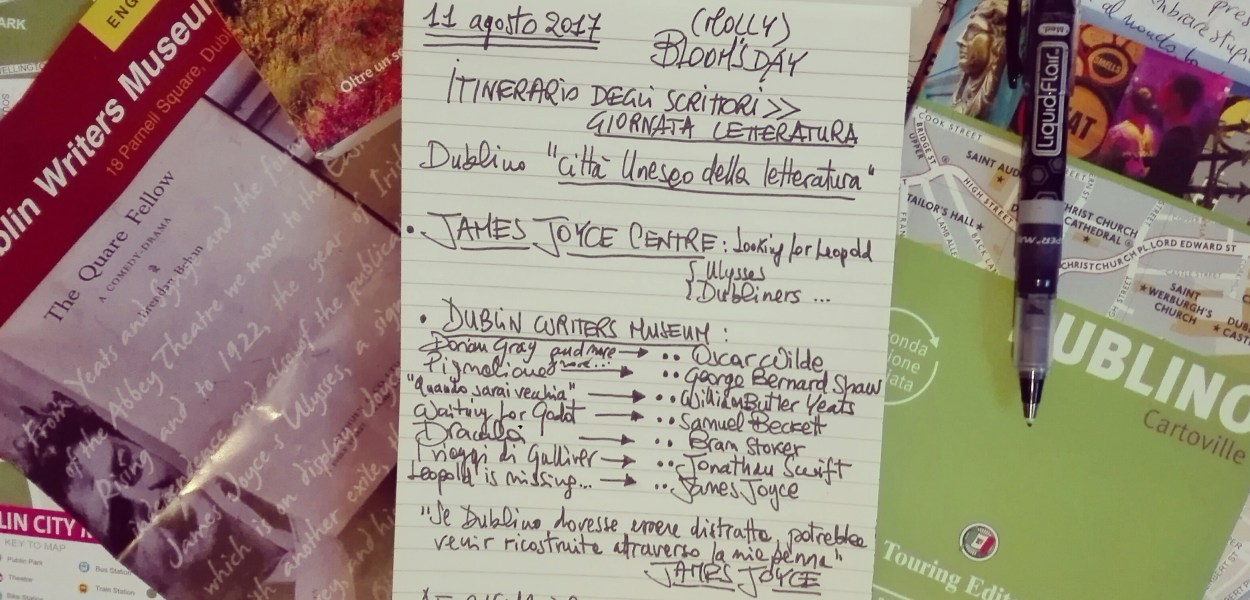 11 agosto 2017
(MOLLY)
BLOOM'S DAY
ITINERARIO DEGLI SCRITTORI >>
GIORNATA LETTERATURA
Dublino "Città Unesco della letteratura"
• JAMES JOYCE CENTRE: Looking for Leopold
{ Ulysses
{ Dubliners ...
• DUBLIN WRITERS MUSEUM:
Dorian Gray and more → •• Oscar Wilde
Pigmalione more... → •• George Bernard Shaw
"Quando sarai vecchia" → •• William Butler Yeats
Waiting for Godot → •• Samuel Beckett
Dracula → •• Bram Stoker
I viaggi di Gulliver → •• Jonathan Swift
Leopold is missing... → •• James Joyce
"Se Dublino dovesse essere distratta, potrebbe
venir ricostruita attraverso la mia penna"
JAMES JOYCE
ENG
blin Writers Museum
18 Parnell Square, Dubl
The Quare Fellow
A COMEDY-DRAMA
Brendan Behan
From Yeats and
of the Abbey Theatre we move to the year
Rising and to 1922, the year of
and also of the publica
James Joyce's Ulysses, a
which is on display
another exile,
Oltre un se
PARK
WELLINGTON
LIN CITY
KEY TO MAP
Public Park
Theatre
Bus Station
Train Station
Liquid·Flair
Med.
COOK STREET
BRIDGE ST
UPPER
SAINT AUD
HIGH STREET
TAILOR'S HALL
CHRIST CHURCH
CATHEDRAL
CHRISTCHURCH PL
LORD EDWARD ST
CASTLE STREET
SAINT
WERBURGH'S
CHURCH
DUB
CAST
UBLINO
Cartoville
Touring Edit